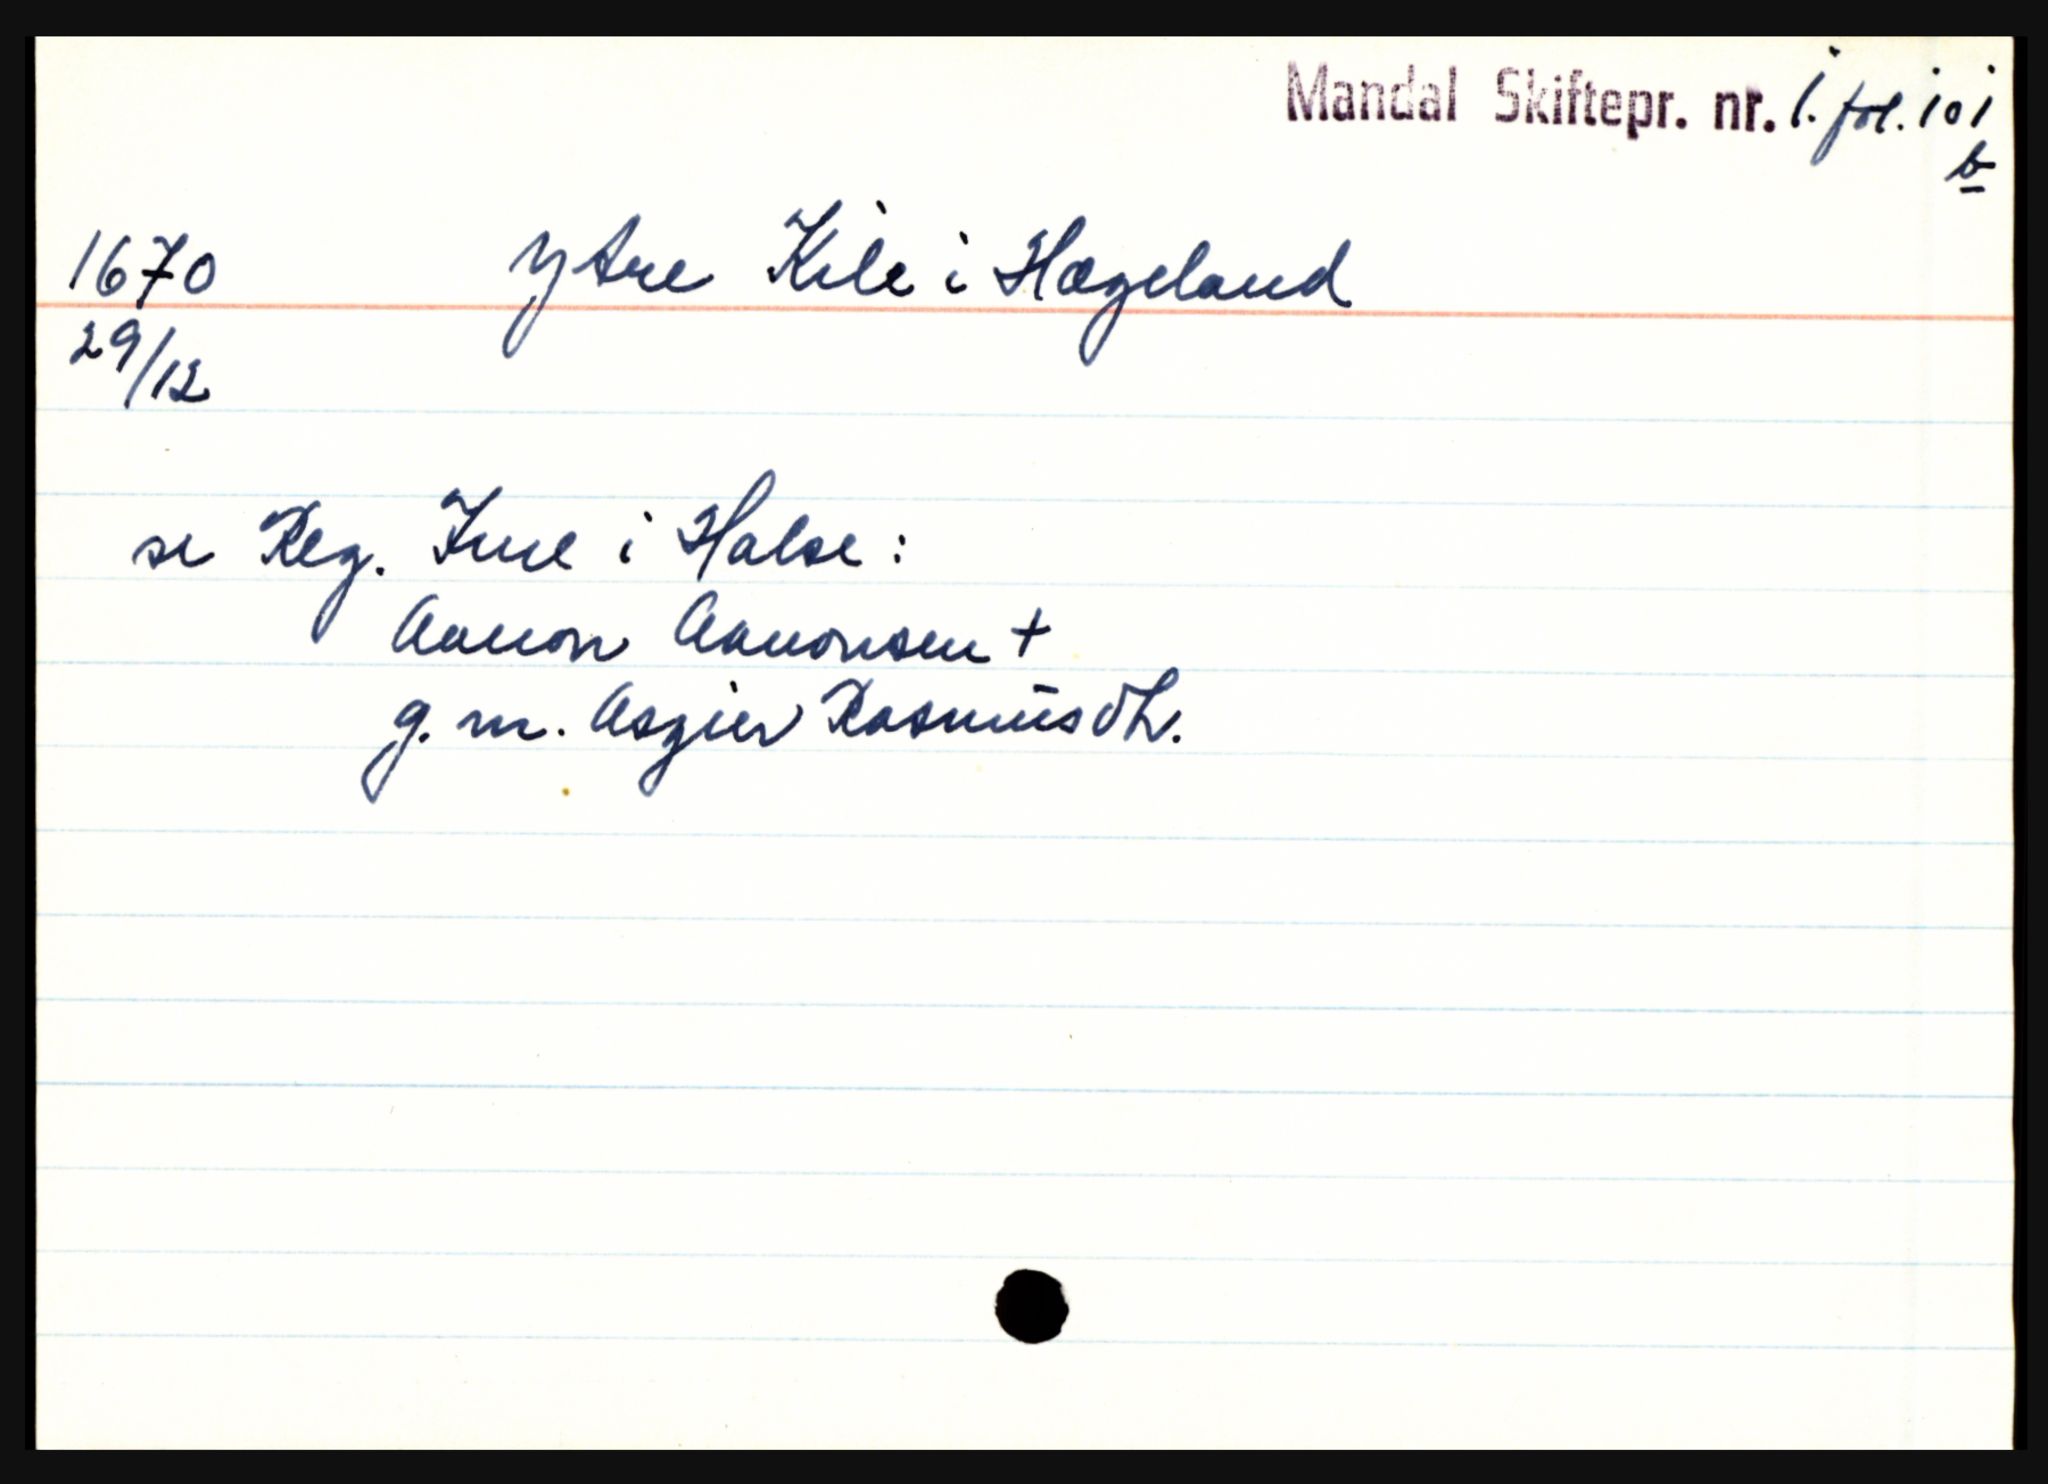 Mandal Skiftepr. nr. 1. fol. 101
b
1670 Ytre Kile i Hægeland
29/12
se Reg. i Halse :
Aanon Aanonsen +
g. m. Asgier Rasmusdtr.